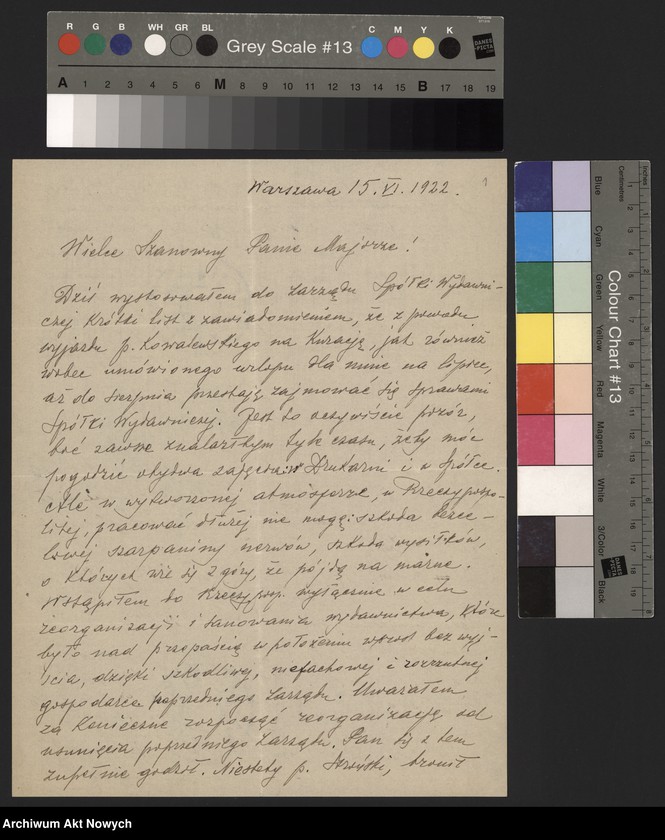 R G B WH GR BL Grey Scale #13 C M Y K DANES PICTA
A 1 2 3 4 5 6 M 8 9 10 11 12 13 14 15 B 17 18 19
Warszawa 15.VI.1922.
1
Wielce Szanowny Panie Majorze!
Dziś wystosowałem do Zarządu Spółki Wydawni-
czej krótki list z zawiadomieniem, że z powodu
wyjazdu p. Kowalewskiego na Kurację, jak również
wobec umówionego urlopu dla mnie na lipiec,
aż do sierpnia przestaję zajmować się sprawami
Spółki Wydawniczej. Jest to oczywiście pozór,
boć zawsze znalazłbym tyle czasu, żeby móc
pogodzić obydwa zajęcia: w Drukarni i w Spółce.
Ale w wytworzonej atmosferze, w Rzeczypospo-
litej, pracować dłużej nie mogę: szkoda bezce-
lowej szarpaniny nerwów, szkoda wysiłków,
o których wie się z góry, że pójdą na marne.
Wstąpiłem do Rzeczyposp. wyłącznie w celu
reorganizacji i sanowania wydawnictwa, które
było nad przepaścią w położeniu wprost bez wyj-
ścia, dzięki szkodliwej, niefachowej i rozrzutnej
gospodarce poprzedniego Zarządu. Uważałem
za konieczne rozpocząć reorganizację od
usunięcia poprzedniego Zarządu. Pan się z tem
zupełnie godził. Niestety p. Stroński, bronił
Colour Chart #13
Blue Cyan Green Yellow Red Magenta White 3/Color Black
Centimetres
Inches
DANES PICTA
Archiwum Akt Nowych